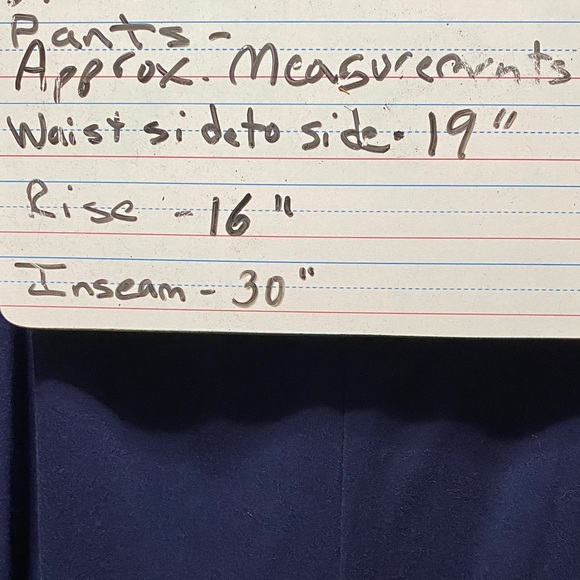 Pants -
Approx. Measurements
Waist side to side - 19"
Rise - 16"
Inseam - 30"